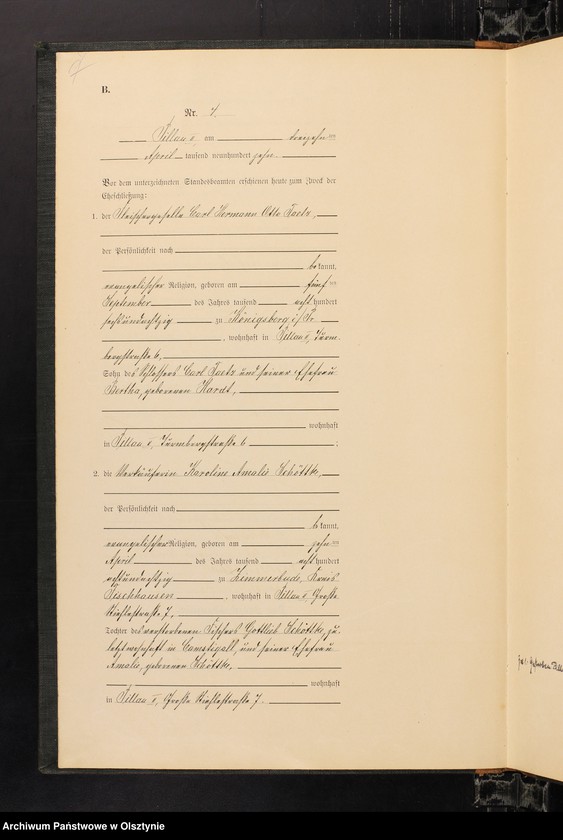 B.
Nr. 4.
Pillau II, am dreizehn ten
April tausend neunhundert zehn
Vor dem unterzeichneten Standesbeamten erschienen heute zum Zweck der
Eheschließung:
1. der Fleischergeselle Carl Hermann Otto
der Persönlichkeit nach
be kannt,
evangelischer Religion, geboren am fünf ten
September des Jahres tausend acht hundert
sechsundachtzig zu Königsberg i/Pr.
, wohnhaft in Pillau II, Turm
bergstraße 6,
Sohn des Schlossers Carl und seiner Ehefrau
Bertha, geborenen
wohnhaft
in Pillau II, Turmbergstraße 6 ;
2. die Verkäuferin Karoline Amalie Schöttke,
der Persönlichkeit nach
be kannt,
evangelischer Religion, geboren am zehn ten
April des Jahres tausend acht hundert
achtundachtzig zu Zimmerbude, Kreis
Fischhausen , wohnhaft in Pillau II, Große
Stiehlestraße 7,
Tochter des verstorbenen Fischers Gottlieb Schöttke, zu
letzt wohnhaft in Camstigall, und seiner Ehefrau
Amalie, geborenen Schöttke,
wohnhaft
in Pillau II, Große Stiehlestraße 7.
Archiwum Państwowe w Olsztynie